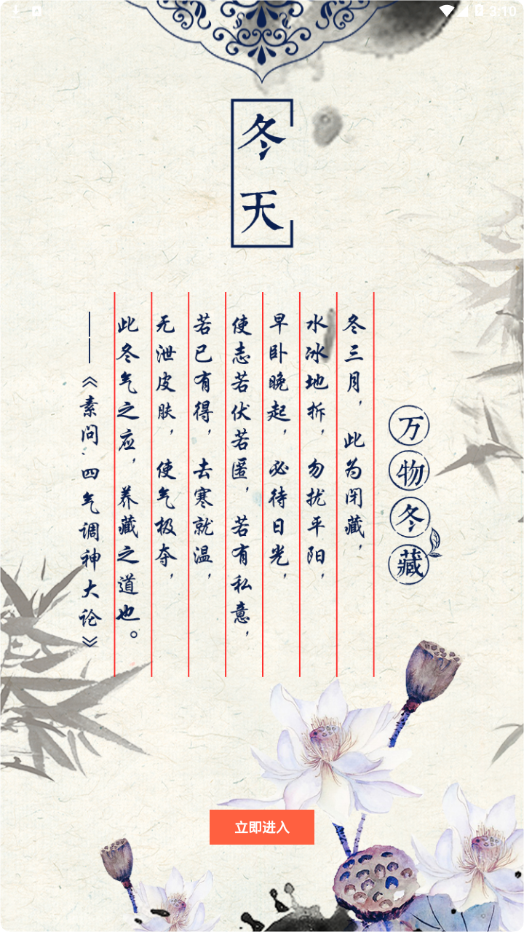 3:10
冬天
万物冬藏
冬三月，此为闭藏，
水冰地拆，勿扰平阳，
早卧晚起，必待日光，
使志若伏若匿，若有私意，
若已有得，去寒就温，
无泄皮肤，使气极夺，
此冬气之应，养藏之道也。
——《素问·四气调神大论》
立即进入